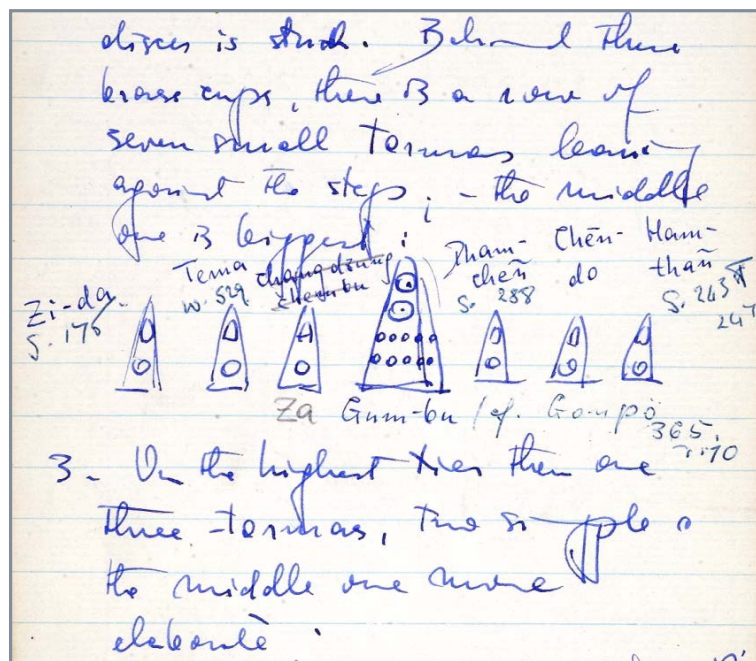 discs is stuck. Behind these
brass cups, there is a row of
seven small Tormas leaning
against the steps; - the middle
one is biggest:
Zi-da. S. 175
Tema W. 529
changdiung chembu
Dham-chēn S. 288
Chēn-do
Ham-thañ S. 263 247
Za Gum-bu / cf. Gonpö
365,
3 - On the highest tier there are
three tormas, two simple
the middle one more
elaborate.